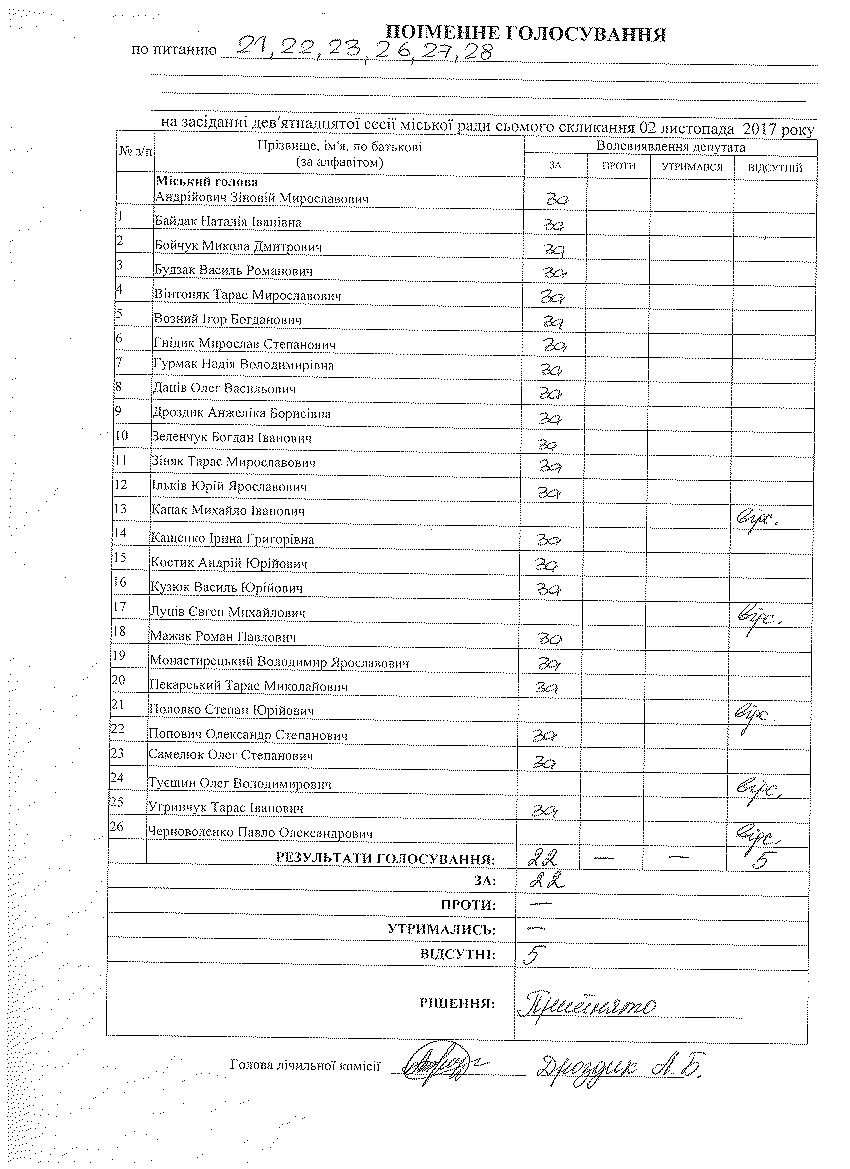 ПОІМЕННЕ ГОЛОСУВАННЯ
по питанню 21, 22, 23, 26, 27, 28
на засіданні дев'ятнадцятої сесії міської ради сьомого скликання 02 листопада 2017 року
№ з/п Прізвище, ім'я, по батькові (за алфавітом) Волевиявлення депутата
ЗА ПРОТИ УТРИМАВСЯ ВІДСУТНІЙ
Міський голова
Андрійович Зіновій Мирославович за
1 Байдак Наталія Іванівна за
2 Бойчук Микола Дмитрович за
3 Будзак Василь Романович за
4 Вінтоняк Тарас Мирославович за
5 Возний Ігор Богданович за
6 Гнідик Мирослав Степанович за
7 Гурмак Надія Володимирівна за
8 Даців Олег Васильович за
9 Дроздик Анжеліка Борисівна за
10 Зеленчук Богдан Іванович за
11 Зіняк Тарас Мирославович за
12 Ільків Юрій Ярославович за
13 Капак Михайло Іванович відс.
14 Кащенко Ірина Григорівна за
15 Костик Андрій Юрійович за
16 Кузюк Василь Юрійович за
17 Луців Євген Михайлович відс.
18 Мажак Роман Павлович за
19 Монастирецький Володимир Ярославович за
20 Пекарський Тарас Миколайович за
21 Полодко Степан Юрійович відс
22 Попович Олександр Степанович за
23 Самелюк Олег Степанович за
24 Туєшин Олег Володимирович відс.
25 Угринчук Тарас Іванович за
26 Черноволенко Павло Олександрович відс.
РЕЗУЛЬТАТИ ГОЛОСУВАННЯ: 22 — — 5
ЗА: 22
ПРОТИ: —
УТРИМАЛИСЬ: —
ВІДСУТНІ: 5
РІШЕННЯ: Прийнято
Голова лічильної комісії Дроздик А.Б.